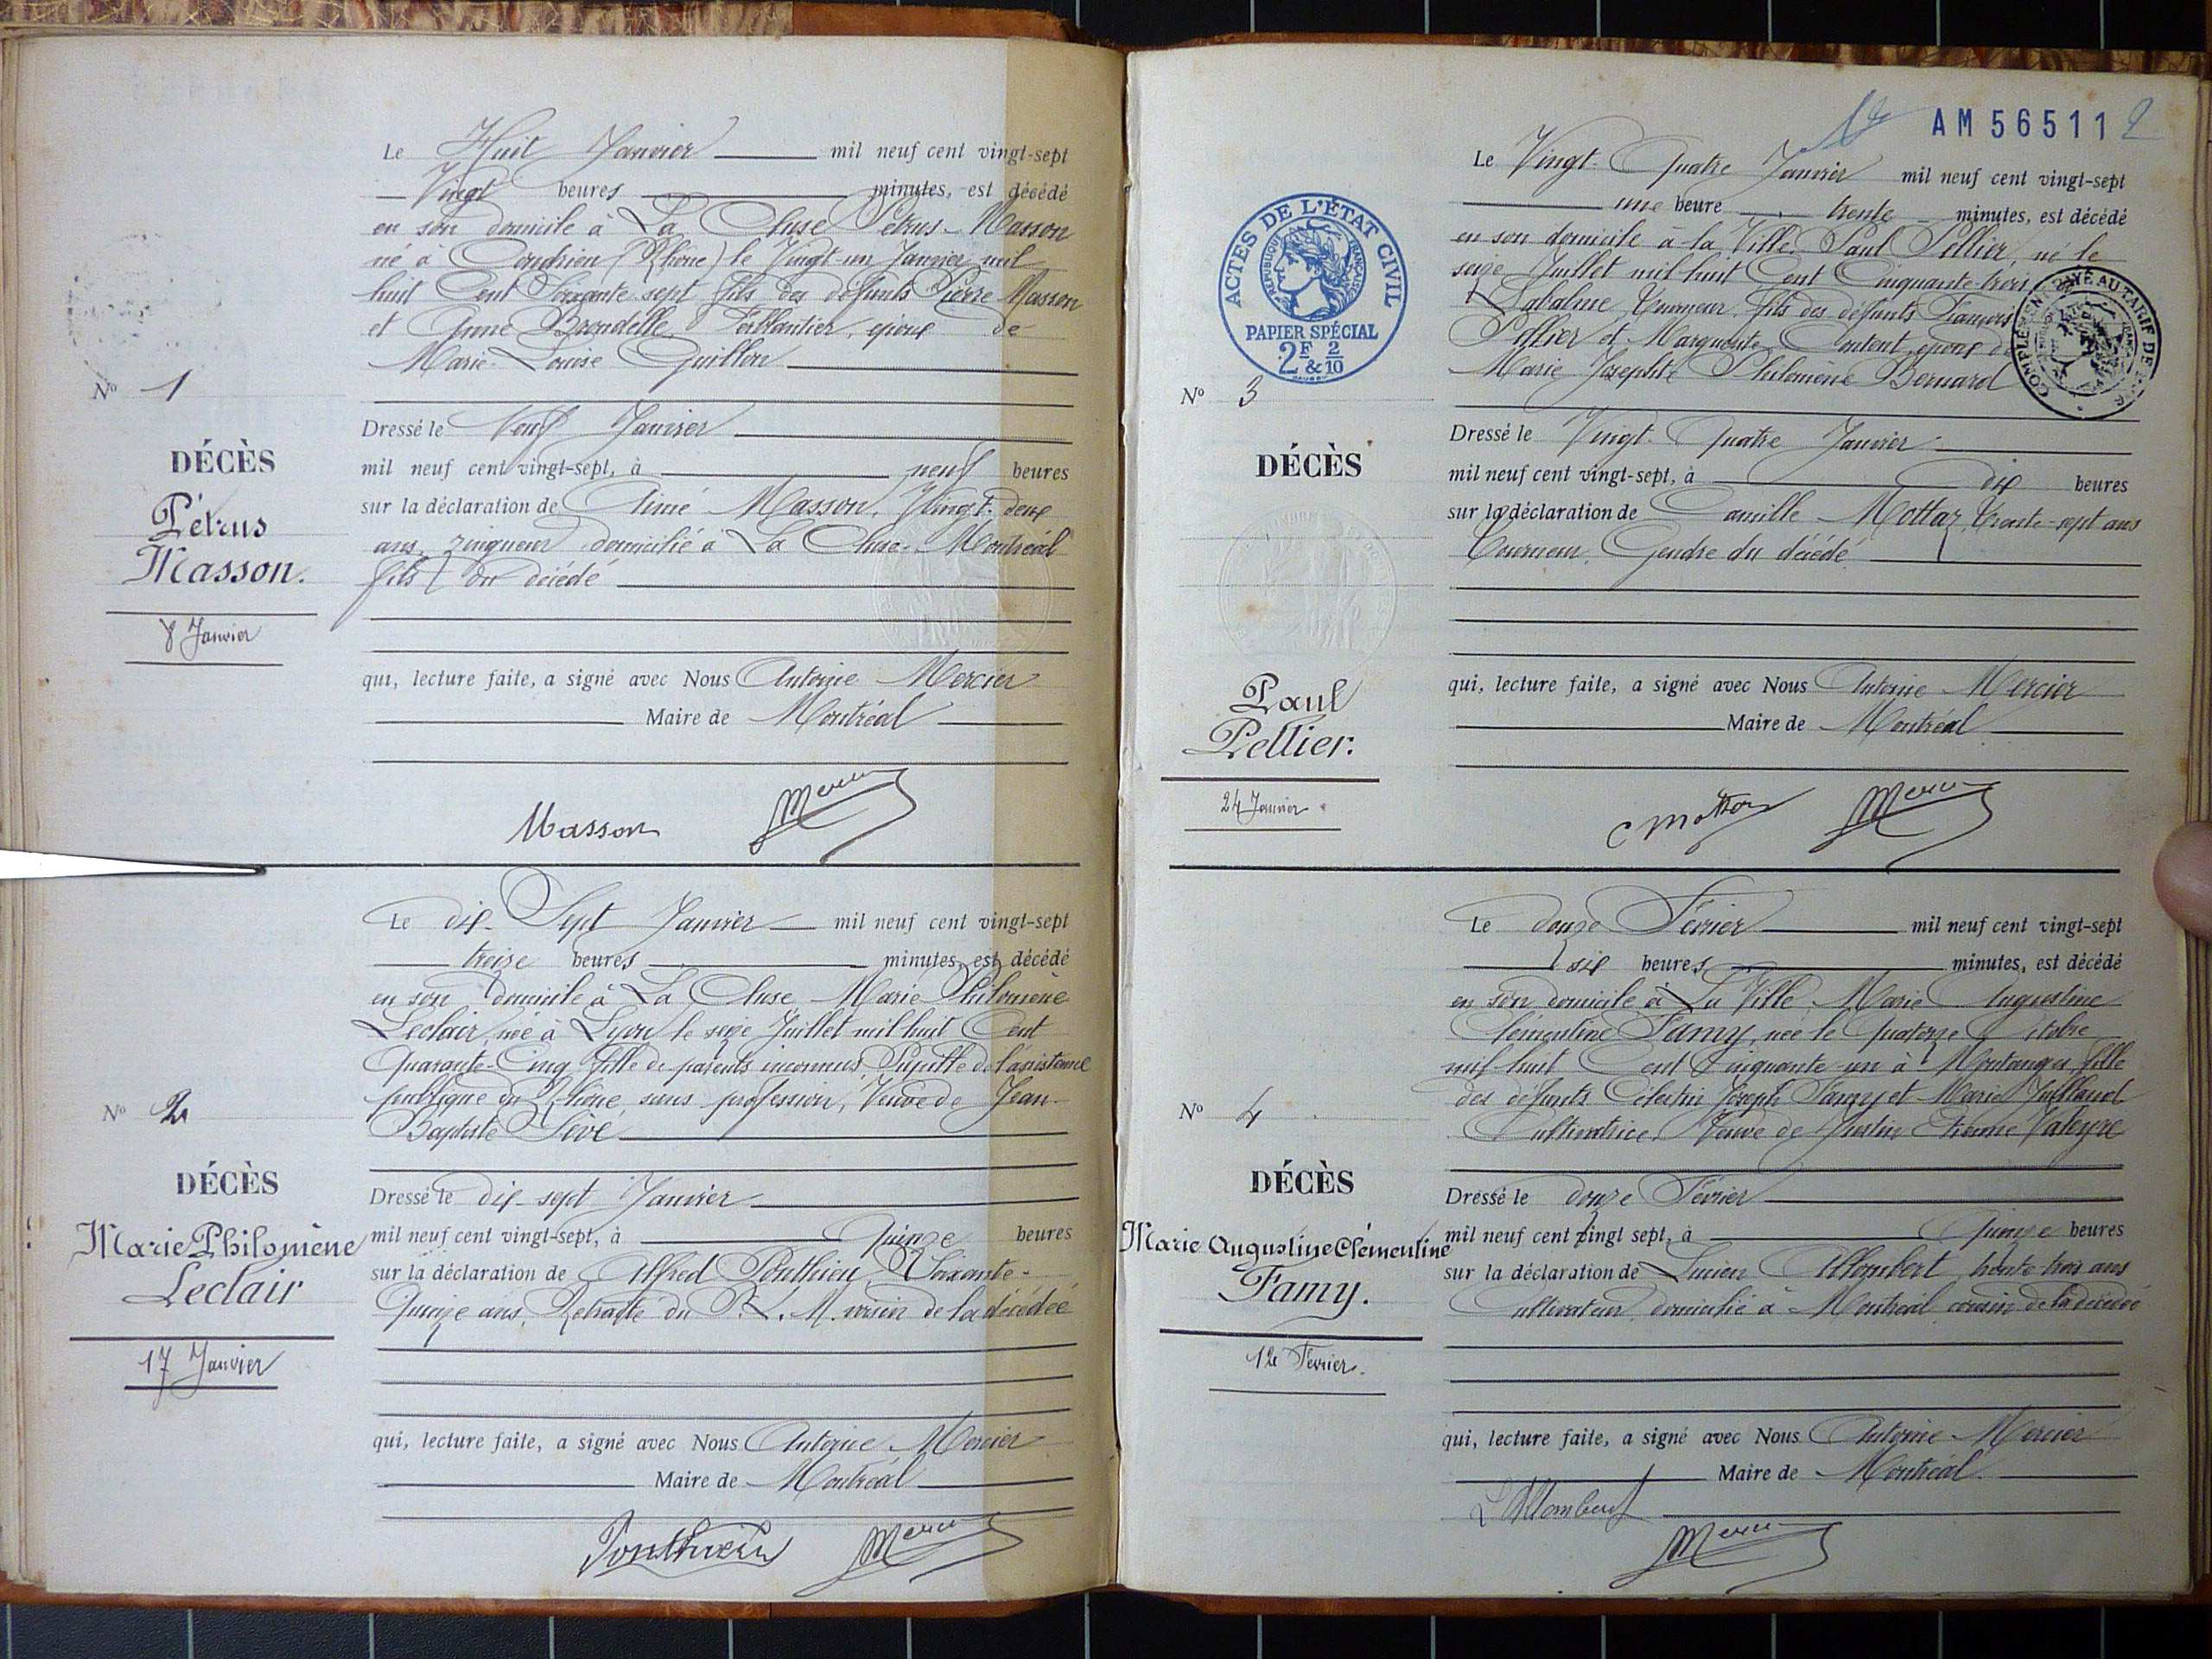 Le Huit Janvier mil neuf cent vingt-sept
Vingt heures minutes, est décédé
en son domicile à La Cluse Pétrus Masson
né à Condrieu (Rhône) le Vingt-un Janvier mil
huit Cent Soixante-sept fils des défunts Pierre Masson
et Anne Ferblantier, époux de
Marie-Louise
No 1
DÉCÈS
Pétrus
Masson.
8 Janvier
Dressé le Neuf Janvier
mil neuf cent vingt-sept, à neuf heures
sur la déclaration de Aimé Masson, Vingt-deux
ans, zingueur domicilié à La Cluse-Montréal
fils du décédé
qui, lecture faite, a signé avec Nous Antoine Mercier
Maire de Montréal
Masson Mercier
Le dix-Sept Janvier mil neuf cent vingt-sept
treize heures minutes, est décédé
en son domicile à La Cluse Marie Philomène
Leclair, née à Lyon le seize Juillet mil huit Cent
Quarante-Cinq fille de parents inconnus, Pupille de l'assistance
publique du Rhône, sans profession, Veuve de Jean-
Baptiste Sève
No 2
DÉCÈS
Marie Philomène
Leclair
17 Janvier
Dressé le dix-sept Janvier
mil neuf cent vingt-sept, à Quinze heures
sur la déclaration de Alfred Ponthieu, Soixante-
Quinze ans, Retraité du P.L.M. voisin de la décédée
qui, lecture faite, a signé avec Nous Antoine Mercier
Maire de Montréal
Ponthieu Mercier
AM 56511 2
Le Vingt-Quatre Janvier mil neuf cent vingt-sept
une heure trente minutes, est décédé
en son domicile à la Ville Paul Pellier, né le
seize Juillet mil huit Cent Cinquante-trois
Labalme, Tourneur, fils des défunts François
Pellier et Marguerite Content, époux de
Marie Josephte Philomène Bernard
ACTES DE L'ÉTAT CIVIL
RÉPUBLIQUE FRANÇAISE
PAPIER SPÉCIAL
2F & 2/10
COMPLÉMENT PAYÉ AU TARIF DE
No 3
DÉCÈS
Paul
Pellier.
24 Janvier
Dressé le Vingt-Quatre Janvier
mil neuf cent vingt-sept, à dix heures
sur la déclaration de Camille Mottaz, trente-sept ans
Tourneur, Gendre du décédé
qui, lecture faite, a signé avec Nous Antoine Mercier
Maire de Montréal
C Mottaz Mercier
Le douze Février mil neuf cent vingt-sept
six heures minutes, est décédé
en son domicile à La Ville Marie Augustine
Clémentine Famy, née le Quatorze Octobre
mil huit Cent Cinquante-un à Montanges, fille
des défunts Célestin Joseph Famy et Marie Juilland
Cultivatrice, Veuve de Justin Etienne
No 4
DÉCÈS
Marie Augustine Clémentine
Famy.
12 Février.
Dressé le douze Février
mil neuf cent vingt sept, à Quinze heures
sur la déclaration de Lucien Allombert trente trois ans
Cultivateur domicilié à Montréal cousin de la décédée
qui, lecture faite, a signé avec Nous Antoine Mercier
Maire de Montréal
L Allombert
Mercier